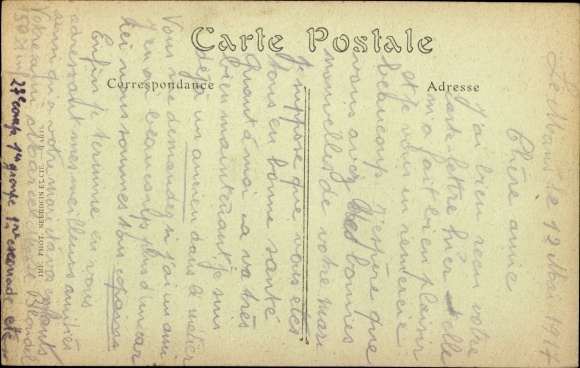 Carte Postale
Correspondance
Adresse
IMP. PHOT. NEURDEIN ET CIE. PARIS
Le Mans le 12 Mai 1917
Chère amie
J'ai bien reçu votre
carte lettre hier elle
m'a fait bien plaisir
et je vous en remercie
beaucoup J'espère que
vous avez des bonnes
nouvelles de votre mari
Je suppose que vous êtes
tous en bonne santé
Quant à moi ça va très
bien maintenant je suis
déjà un ancien dans le métier
Vous me demandez si j'ai un ami
J'en ai beaucoup plus d'un car
ici nous sommes tous copains
Enfin je termine en vous
adressant mes meilleurs amitiés
ainsi qu'à votre mari et à vos enfants
Votre ami
Blondel
27e 1er groupe 1re escouade